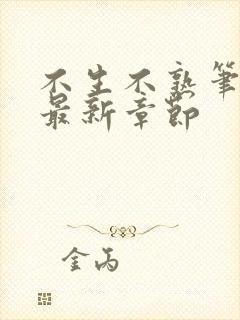 不生不熟笔
最新章节
金丙